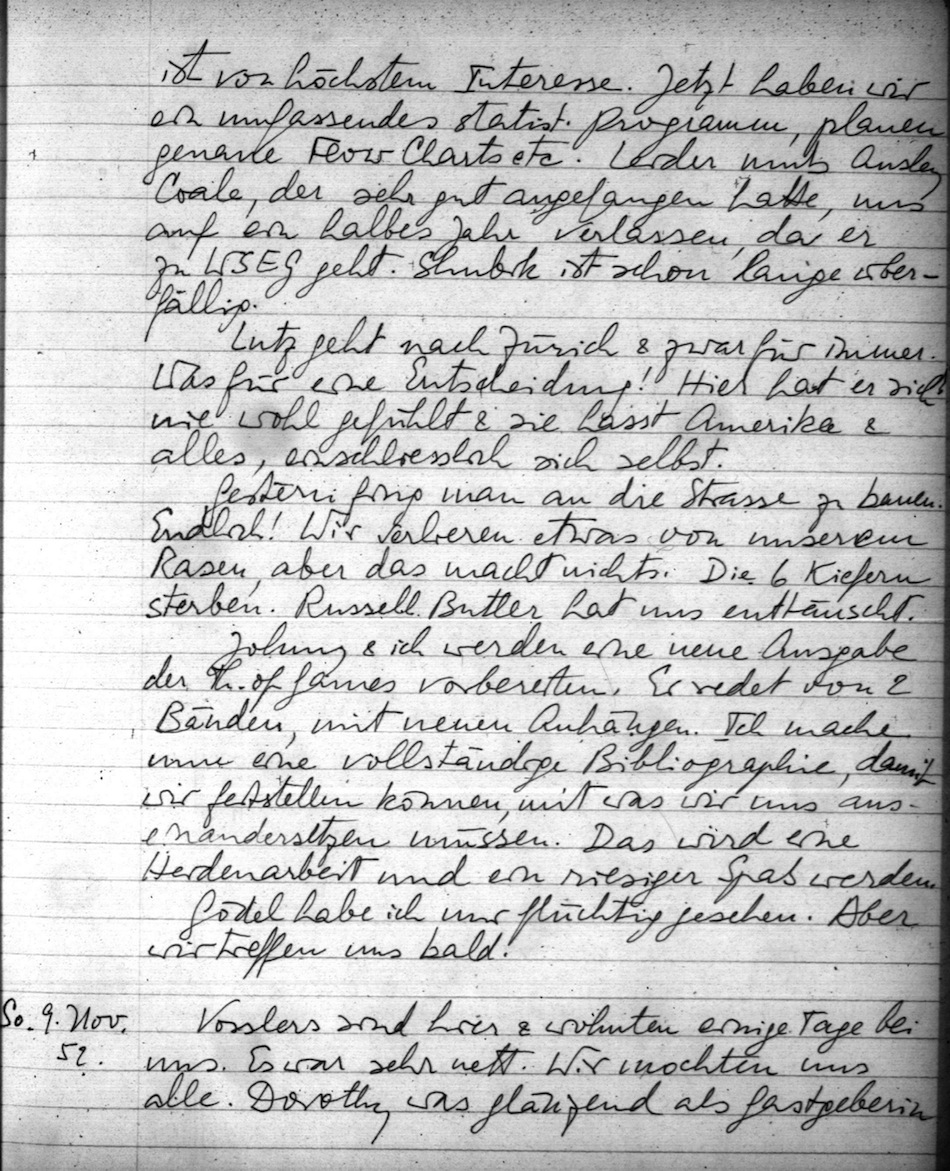 ist von höchstem Interesse. Jetzt haben wir
ein umfassendes statist. Programm, planen
genaue Flow Charts etc. Leider muß Ansley
Coale, der sehr gut angefangen hatte, uns
auf ein halbes Jahr verlassen, da er
zu WSEG geht. Shubik ist schon lange über-
fällig.
Lutz geht nach Zürich & zwar für immer.
Was für eine Entscheidung! Hier hat er sich
nie wohl gefühlt & sie hasst Amerika &
alles, einschliesslich sich selbst.
Gestern fing man an die Strasse zu bauen.
Endlich! Wir verlieren etwas von unserem
Rasen, aber das macht nichts. Die 6 Kiefern
sterben. Russell Butler hat uns enttäuscht.
Johnny & ich werden eine neue Ausgabe
der Th. of Games vorbereiten. Er redet von 2
Bänden, mit neuen Anhängen. Ich mache
nun eine vollständige Bibliographie, damit
wir feststellen können, mit was wir uns aus-
einandersetzen müssen. Das wird eine
Heidenarbeit und ein riesiger Spaß werden.
Gödel habe ich nur flüchtig gesehen. Aber
wir treffen uns bald.
So. 9. Nov. Vosslers sind hier & wohnten einige Tage bei
52. uns. Es war sehr nett. Wir mochten uns
alle. Dorothy was glänzend als Gastgeberin